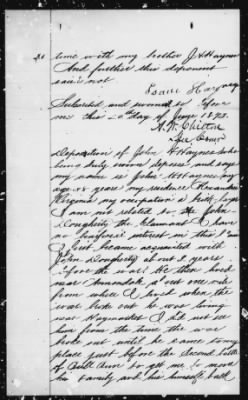 time with my brother J H Haynes
And further this deponent
saith not
Isaac Haynes
Subscribed and sworn to before
me this 20th day of June 1878.
Deposition of John H Haynes who
being duly sworn deposes and says
my name is John H Haynes my
age years my residence Alexandria
Virginia my occupation is
I am not related to John
Dougherty the claimant I have
no beneficial interest in this claim
I first became acquainted with
John Dougherty about 2 years
before the war. He then lived
near Annandale about one mile
from where I lived when the
war broke out he was living
near I did not see
him from the time the war
broke out until he came to my
place just before the second battle
of Bull Run to get me to move
his family and his household